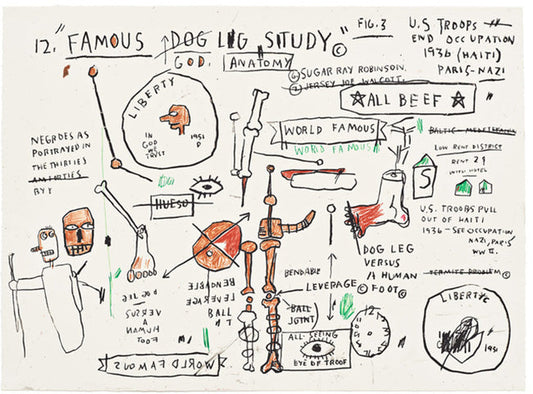 12. "FAMOUS DOG LEG STUDY" ©
FIG. 3
U.S TROOPS
END OCCUPATION
1936 (HAITI)
PARIS-NAZI
GOD.
ANATOMY
SUGAR RAY ROBINSON.
JERSEY JOE WALCOTT.
ALL BEEF
LIBERTY
IN
GOD
WE
TRUST
1951
D
WORLD FAMOUS
WORLD FAMOUS
LOW RENT DISTRICT
RENT 2¶
WITH HOTEL
S
NEGROES AS
PORTRAITED IN
THE THIRTIES
HUESO
U.S. TROOPS PULL
OUT OF HAITI
1936 - SEE OCCUPATION
NAZI, PARIS
WW II.
DOG LEG
VERSUS
A HUMAN
© FOOT ©
TERMITE PROBLEM ©
DOG LEG
VERSUS
A
HUMAN
FOOT
BENDABLE
LEVERAGE
BALL
BENDABLE
LEVERAGE
BALL
JOINT
ALL-SEEING
EYE OF TROOF
12
LIBERTY
1951
WORLD FAMOUS